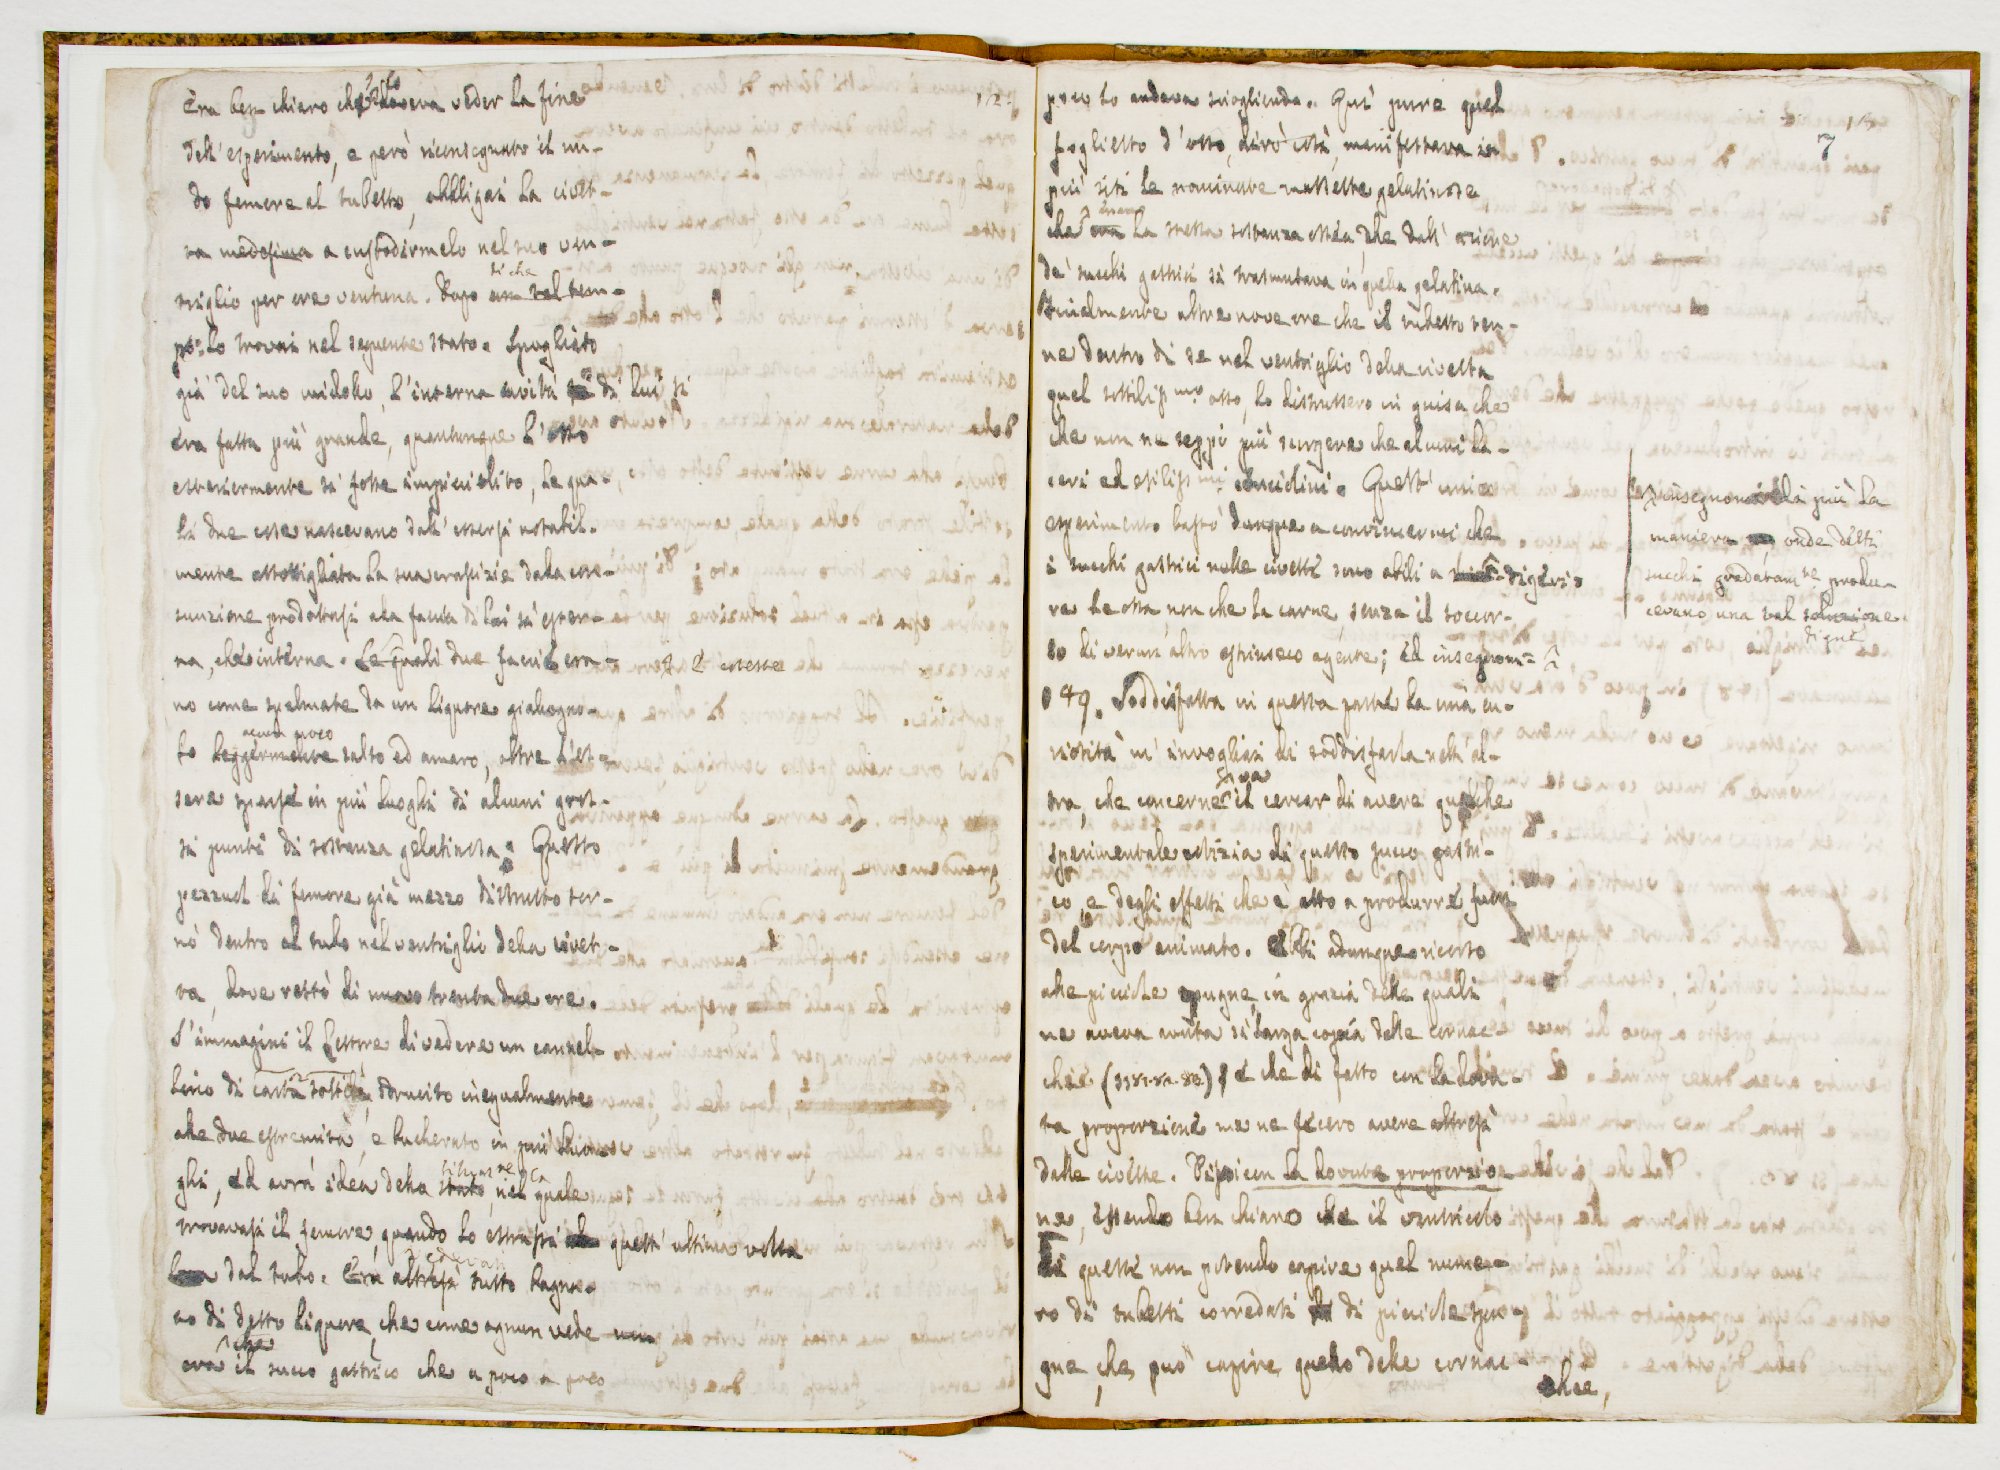 Era ben chiaro che doveva veder la fine
dell'esperimento, e però riconsegnato il nu-
do femore al tubetto, obbligai la civet-
ta medesima a custodirmelo nel suo ven-
triglio per ore ventuna. Dopo un tal tem-
po lo trovai nel seguente stato. Spogliato
già del suo midollo, l'interna cavità di lui si
era fatta più grande, quantunque l'osso
esteriormente si fosse impiciolito, le qua-
li due cose nascevano dall'essersi notabil-
mente assottigliata la sua crassizie dalla con-
sunzione prodottasi alla faccia di lui sì ester-
na, che interna. Le quali due faccie era-
no come spalmate da un liquore giallogno-
lo leggermente salso ed amaro, oltre l'es-
sere sparse in più luoghi di alcuni gros-
si punti di sostanza gelatinosa. Questo
pezzuol di femore già mezzo distrutto tor-
nò dentro al tubo nel ventriglio della civet-
ta, dove restò di nuovo trenta due ore.
S'immagini il Lettore di vedere un cannel-
lino di carta sottile, sdrucito inegualmente
alle due estremità, e bucherato in più luo-
ghi, ed avrà idea dello stato, nel quale
trovavasi il femore, quando lo estrassi quest'ultima volta
dal tubo. Era altresì tutto bagna-
to di detto liquore, che come ognun vede
era il succo gastrico che a poco a poco
12.
poco lo andava sciogliendo. Quì pure quel
foglietto d'osso, dirò così, manifestava in
più siti le nominate masse gelatinose
che la stessa sostanza ossea, che dall'azione
de' succhi gastrici si trasmutava in quella gelatina.
Finalmente altre nove ore che il tubetto ten-
ne dentro di se nel ventriglio della civetta
quel sottilissmo osso, lo distrussero in guisa che
che non ne seppi più scorgere che alcuni la-
ceri ed esilissmi bricciolini. Quest'unico
esperimento bastò dunque a convincermi che
i succhi gastrici nelle civette sono abili a digeri-
re le ossa, non che la carne, senza il soccor-
so di verun altro estrinseco agente; ed insegnom-
149. Soddisfatta in questa parte la mia cu-
riosità m'invogliai di soddisfarla nell'al-
tra, che concerneva il cercar di avere qualche
sperimentale notizia di questo succo gastri-
co, e degli effetti che è atto a produrre fuori
del corpo animato. Ebbi adunque ricorso
alle picciole spugne, in grazia delle quali
ne aveva avuta sì larga copia dalle cornac-
chie (§§ 81. 82. 83.) e che di fatto con la dovu-
ta proporzione me ne fecero avere altresì
dalle civette. Dissi con la dovuta proporzio-
ne, essendo ben chiaro che il ventricolo
di queste non potendo capire quel nume-
ro di tubetti corredati di picciole spu-
gne, che può capire quello delle cornac-
chie,
7
insegnommi di più la
maniera onde detti
succhi gradatamte produ-
cevano una tal soluzione.